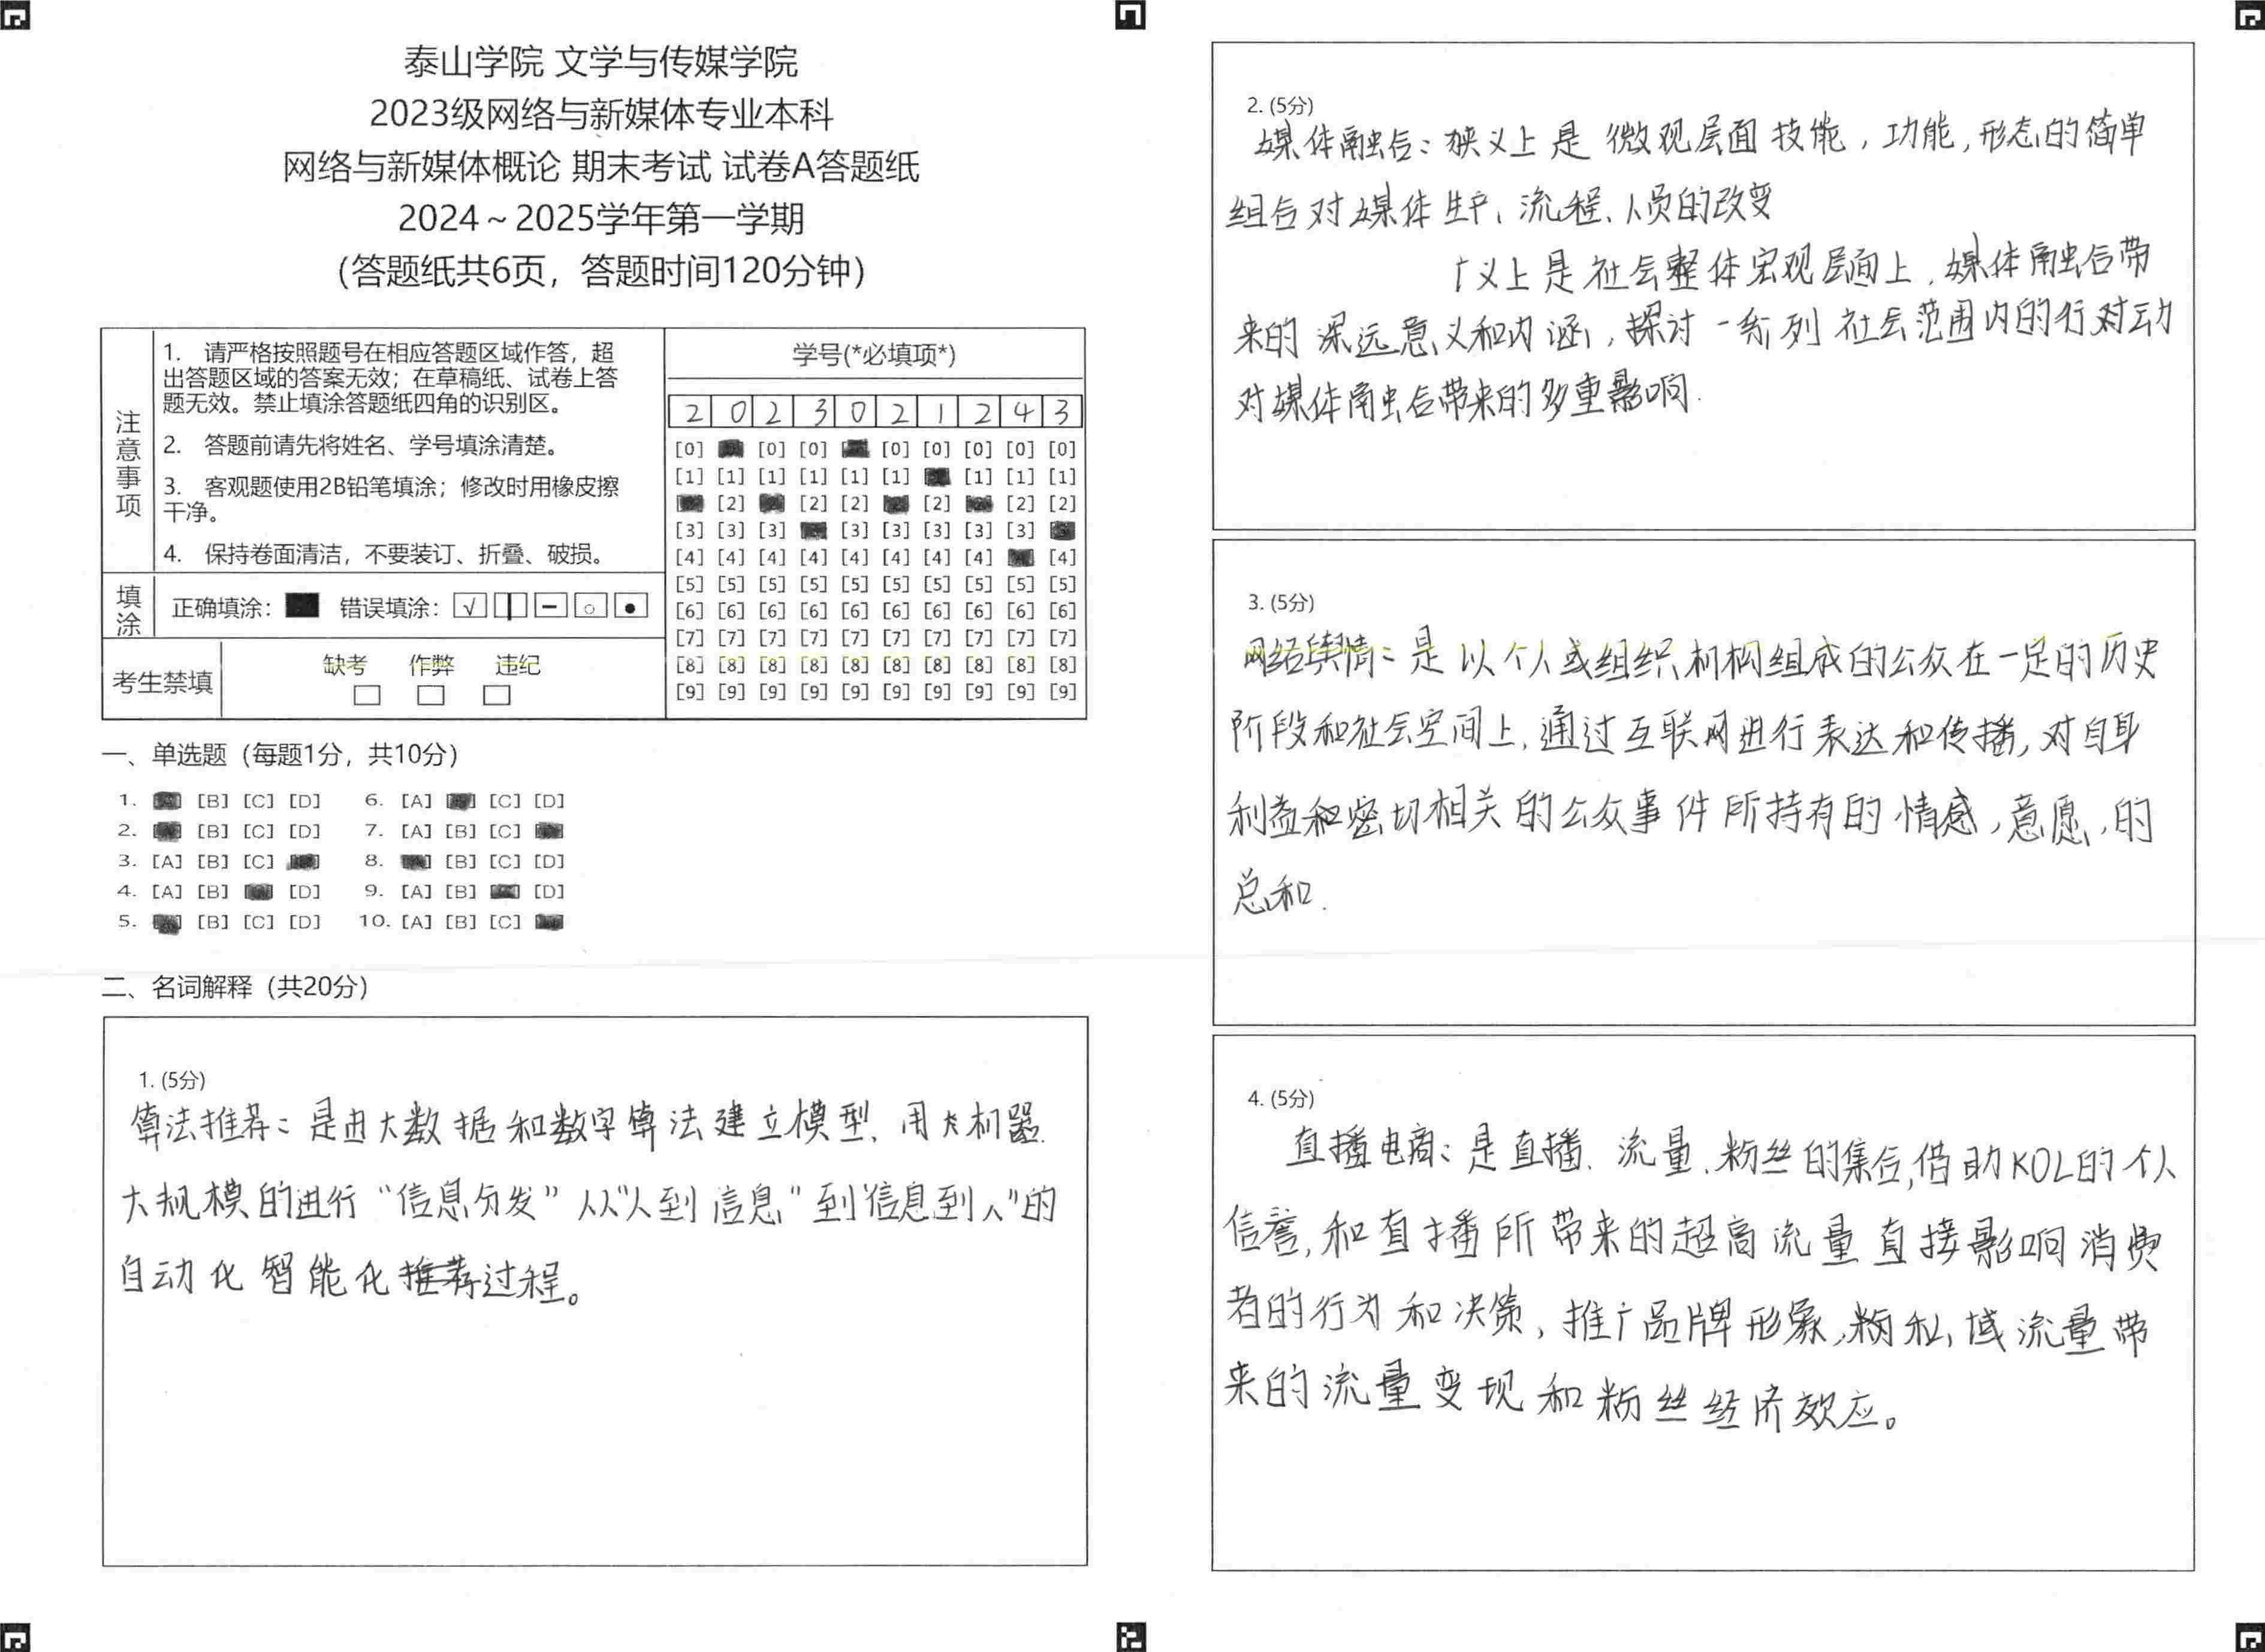 泰山学院 文学与传媒学院
2023级网络与新媒体专业本科
网络与新媒体概论 期末考试 试卷A答题纸
2024～2025学年第一学期
（答题纸共6页，答题时间120分钟）
注意事项
1. 请严格按照题号在相应答题区域作答，超
出答题区域的答案无效；在草稿纸、试卷上答
题无效。禁止填涂答题纸四角的识别区。
2. 答题前请先将姓名、学号填涂清楚。
3. 客观题使用2B铅笔填涂；修改时用橡皮擦
干净。
4. 保持卷面清洁，不要装订、折叠、破损。
填涂
正确填涂： 错误填涂：
考生禁填
缺考 作弊 违纪
学号(*必填项*)
2 0 2 3 0 2 1 2 4 3
[0] [0] [0] [0] [0] [0] [0] [0]
[1] [1] [1] [1] [1] [1] [1] [1] [1]
[2] [2] [2] [2] [2] [2]
[3] [3] [3] [3] [3] [3] [3] [3]
[4] [4] [4] [4] [4] [4] [4] [4] [4]
[5] [5] [5] [5] [5] [5] [5] [5] [5] [5]
[6] [6] [6] [6] [6] [6] [6] [6] [6] [6]
[7] [7] [7] [7] [7] [7] [7] [7] [7] [7]
[8] [8] [8] [8] [8] [8] [8] [8] [8] [8]
[9] [9] [9] [9] [9] [9] [9] [9] [9] [9]
一、单选题（每题1分，共10分）
1. [B] [C] [D] 6. [A] [C] [D]
2. [B] [C] [D] 7. [A] [B] [C]
3. [A] [B] [C] 8. [B] [C] [D]
4. [A] [B] [D] 9. [A] [B] [D]
5. [B] [C] [D] 10. [A] [B] [C]
二、名词解释（共20分）
1. (5分)
算法推荐：是由大数据和数字算法建立模型、用大机器
大规模的进行“信息分发”从“人到信息”到“信息到人”的
自动化智能化推荐过程。
2. (5分)
媒体融合：狭义上是微观层面技能，功能，形态的简单
组合对媒体生产、流程、人员的改变
广义上是社会整体宏观层面上，媒体融合带
来的深远意义和内涵，探讨一系列社会范围内的行对动
对媒体融合带来的多重影响.
3. (5分)
网络舆情：是以个人或组织机构组成的公众在一定的历史
阶段和社会空间上，通过互联网进行表达和传播，对自身
利益和密切相关的公众事件所持有的情感，意愿，的
总和.
4. (5分)
直播电商：是直播、流量、粉丝的集合，借助KOL的个人
信誉，和直播所带来的超高流量直接影响消费
者的行为和决策，推广品牌形象，私域流量带
来的流量变现和粉丝经济效应。